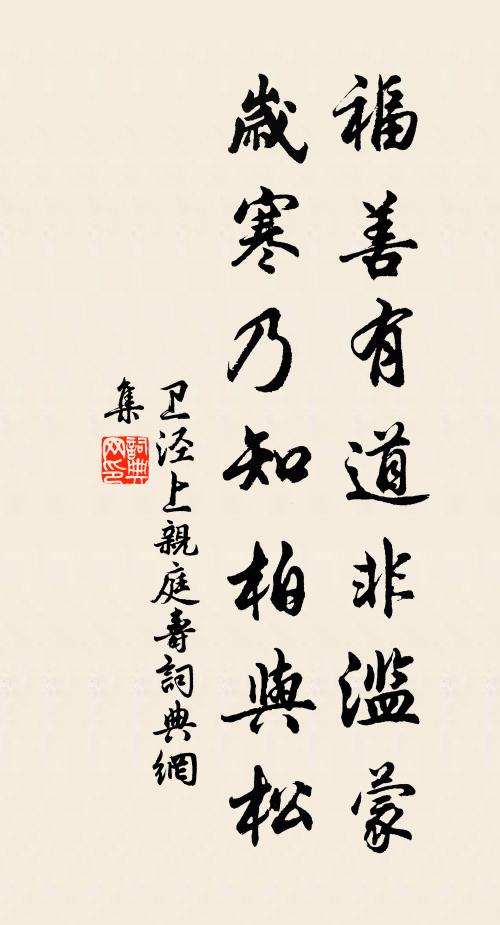 福善有道非滥蒙
歲寒乃知柏與松
卫泾上親庭壽詞典網
集
詞典
网印